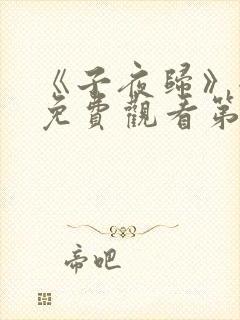 《子夜歸》
免費觀看第
帝吧